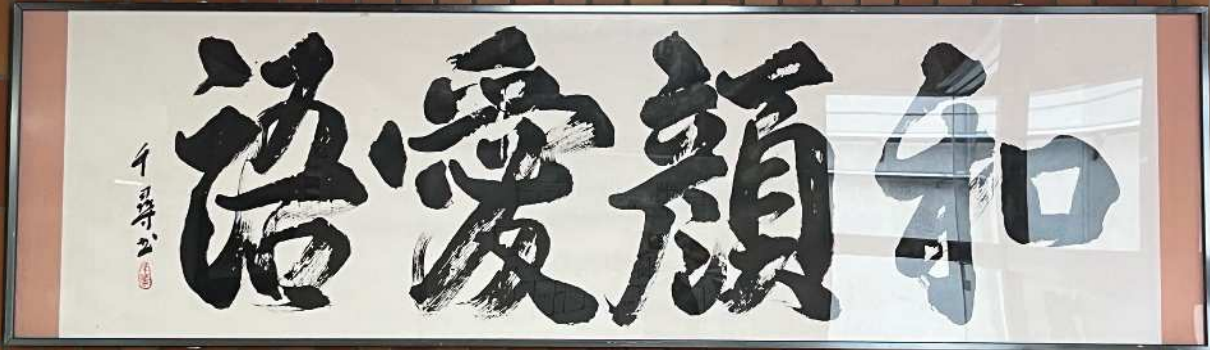 和顔愛語
千尋書